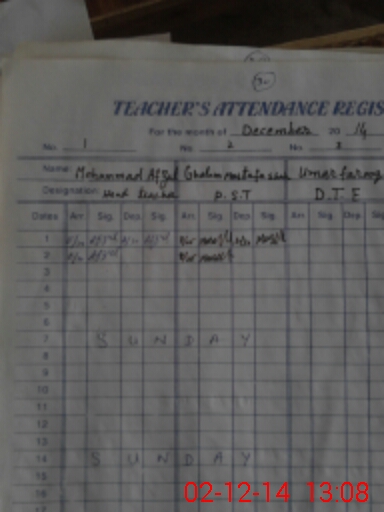 TEACHER'S ATTENDANCE REGIS
For the month of December 20 14
No. 1 No 2 No. 3
Name Mohammad Afzal Ghulam Umer farooq
Designation Head teacher P.S.T D.T.E
Dates Arr. Sig. Dep. Sig. Arr. Sig. Dep. Sig. Arr. Sig. Dep. Sig
1 Afzal Afzal
2 Afzal
3
4
5
6
7 S U N D A Y
8
9
10
11
12
13
14 S U N D A Y
15
16
17
02-12-14 13:08